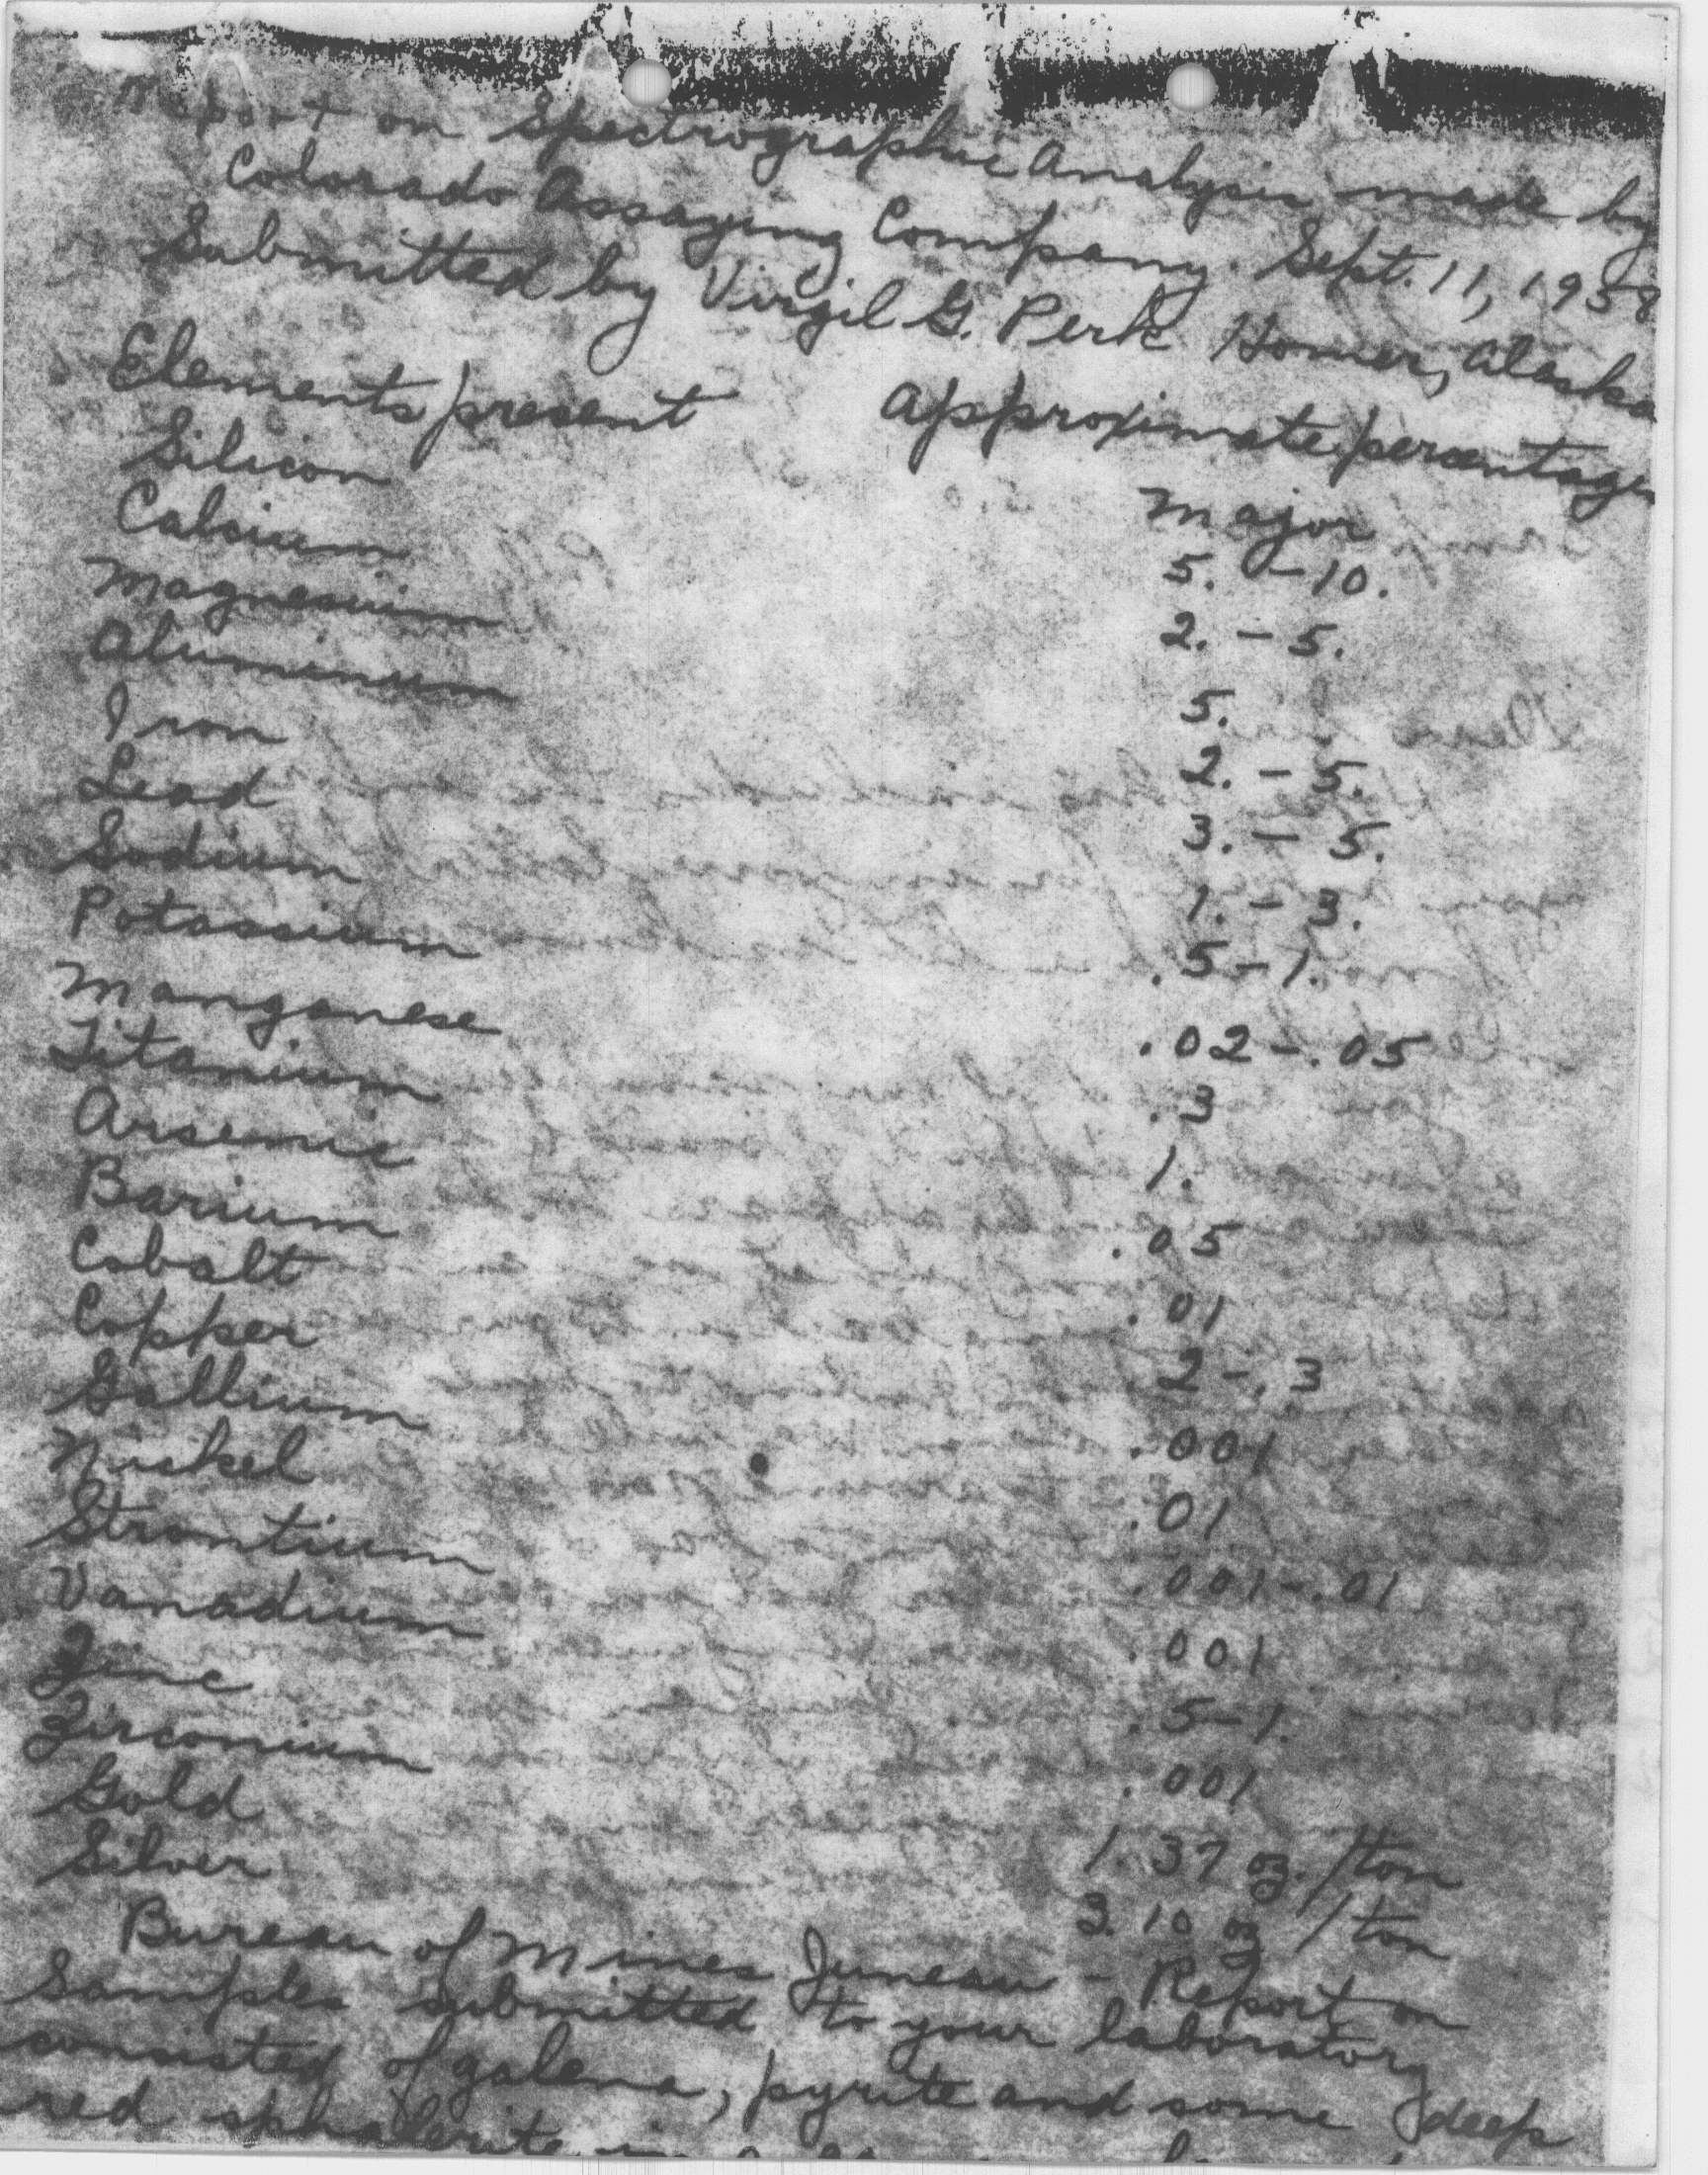 Report on Spectrographic Analysis made by
Colorado Assaying Company. Sept. 11, 1958
Submitted by Virgil G. Perk Homer, Alaska
Elements present Approximate percentages
Silicon Major
Calcium 5. - 10.
Magnesium 2. - 5.
Aluminum 5.
Iron 2. - 5.
Lead 3. - 5.
Sodium 1. - 3.
Potassium .5 - 1.
Manganese .02 - .05
Titanium .3
Arsenic 1.
Barium .05
Cobalt .01
Copper 2 - .3
Gallium .001
Nickel .01
Strontium .001 - .01
Vanadium .001
Zinc .5 - 1.
Zirconium .001
Gold 1.37 oz./ton
Silver 3.10 oz/ton
Bureau of Mines Juneau - Report on
Samples submitted to your laboratory
consisted of galena, pyrite and some deep
red sphalerite in